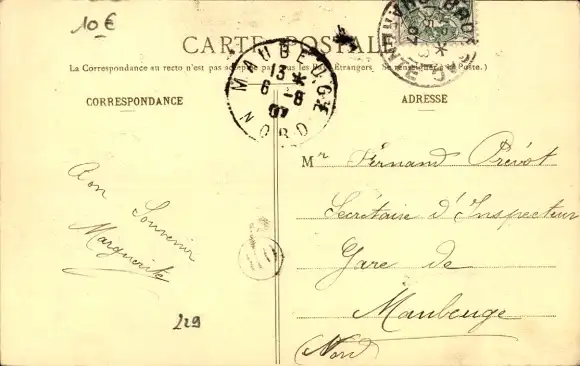 10 €
CARTE POSTALE
La Correspondance au recto n'est pas acceptée par tous les Pays Étrangers Se renseigner à la Poste.)
MAUBEUGE
13 *
6 -8
07
NORD
CORRESPONDANCE
ADRESSE
Bon Souvenir
Marguerite
229
Mr Fernand Prévot
Secrétaire d'Inspecteur
Gare de
Maubeuge
(Nord)